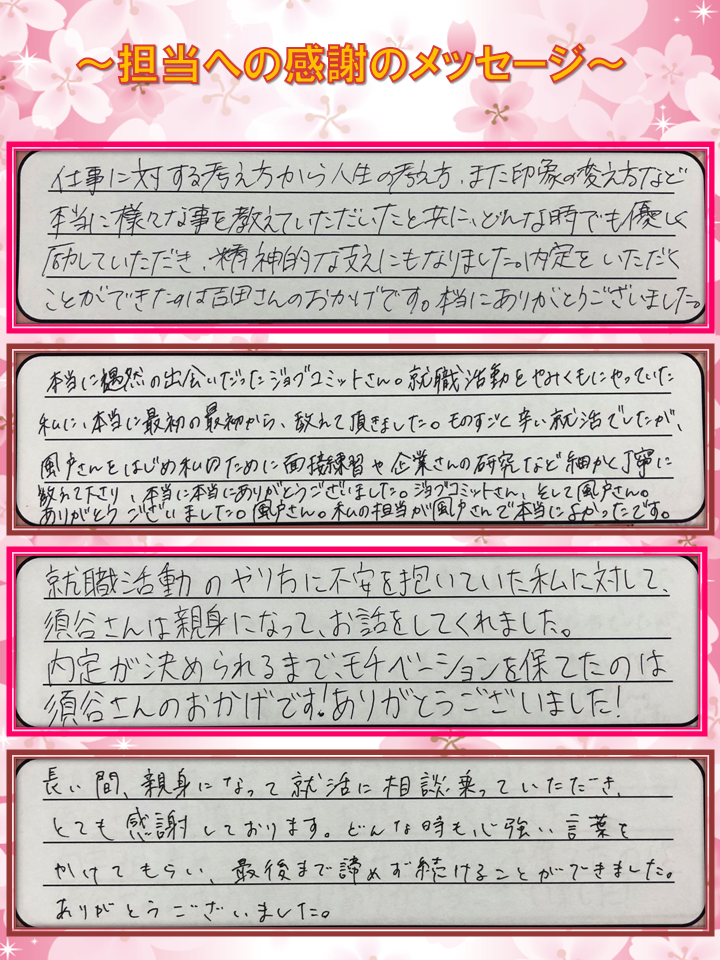 ～担当への感謝のメッセージ～
仕事に対する考え方から人生の考え方、また印象の変え方など
本当に様々な事を教えていただいたと共に、どんな時でも優しく
励していただき、精神的な支えにもなりました。内定をいただく
ことができたのは吉田さんのおかげです。本当にありがとうございました。
本当に偶然の出会いだったジョブコミットさん。就職活動をやみくもにやっていた
私に、本当に最初の最初から、教えて頂きました。ものすごく辛い就活でしたが、
風戸さんをはじめ私のために面接練習や企業さんの研究など細かく丁寧に
教えて下さり、本当に本当にありがとうございました。ジョブコミットさん、そして風戸さん。
ありがとうございました。風戸さん。私の担当が風戸さんで本当によかったです。
就職活動のやり方に不安を抱いていた私に対して、
須谷さんは親身になって、お話をしてくれました。
内定が決められるまで、モチベーションを保てたのは
須谷さんのおかげです!ありがとうございました!
長い間、親身になって就活に相談乗っていただき、
とても感謝しております。どんな時も心強い言葉を
かけてもらい、最後まで諦めず続けることができました。
ありがとうございました。